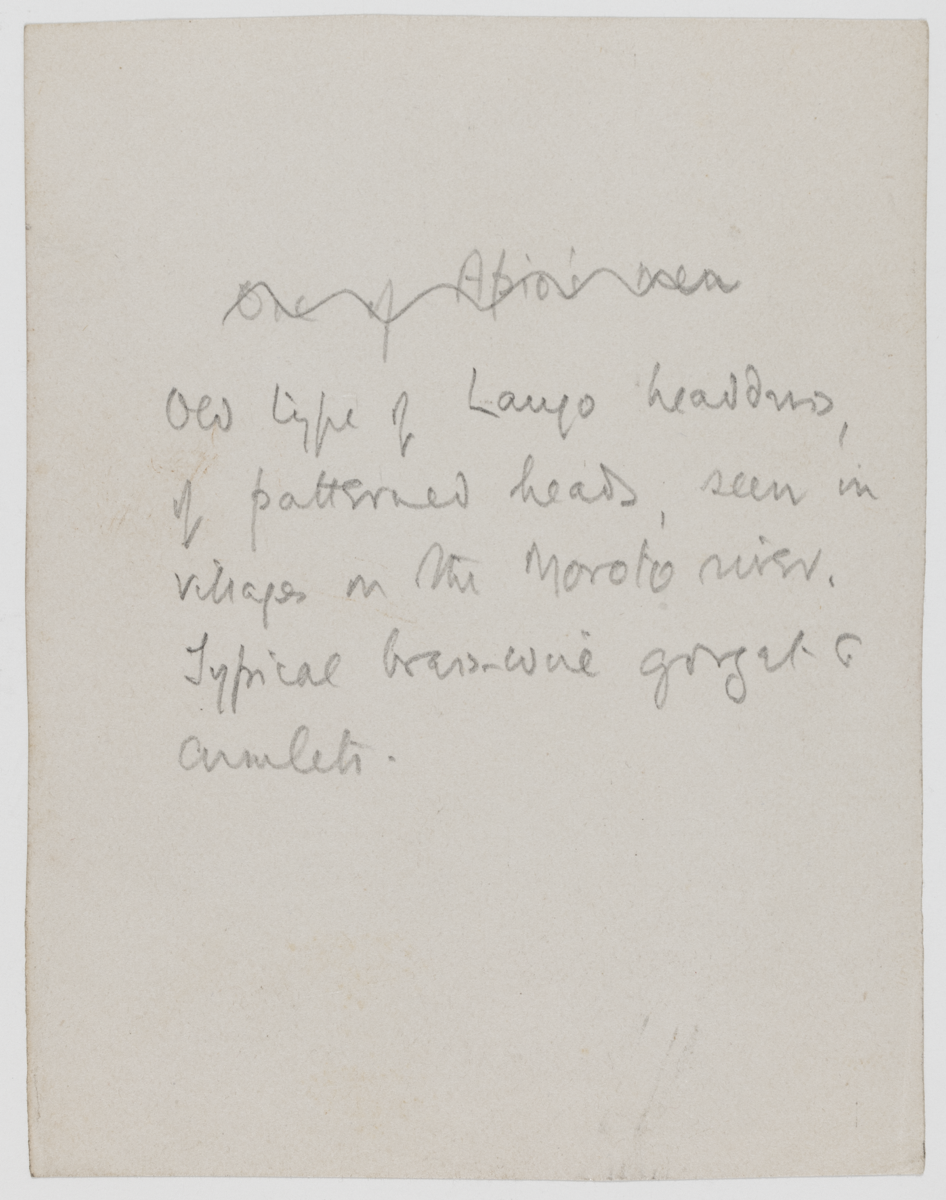 One of Apio's men
Old type of Lango headdress,
of patterned beads, seen in
villages on the Moroto river.
Typical brass-wire gorget &
armlets.